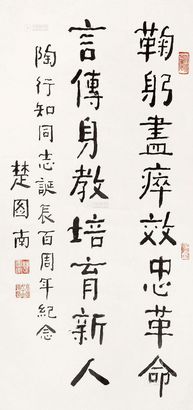 鞠躬盡瘁效忠革命
言傳身教培育新人
陶行知同志誕辰百周年紀念
楚圖南